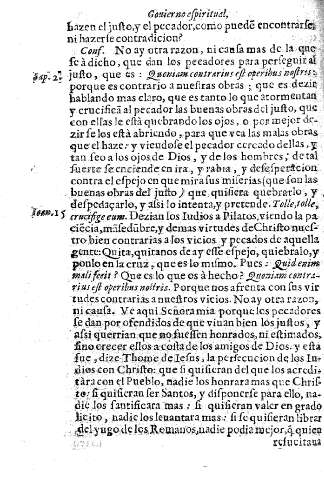 Gouierno espiritual,
hazen el justo, y el pecador, como puedē encontrarse,
ni hazerse contradicion?
Conf. No ay otra razon, ni causa mas de la que
se à dicho, que dan los pecadores para perseguir al
Sap. 2. justo, que es: Quoniam contrarius est operibus nostris:
porque es contrario a nuestras obras: que es dezir
hablando mas claro, que es tanto lo que atormentan
y crucificā al pecador las buenas obras del justo, que
con ellas le estā quebrando los ojos, o por mejor de-
zir se los està abriendo, para que vea las malas obras
que el haze: y viendose el pecador cercado dellas, y
tan feo a los ojos de Dios, y de los hombres, de tal
suerte se enciende en ira, y rabia, y desesperacion
contra el espejo en que mira sus miserias (que son las
buenas obras del justo) que, quisiera quebrarlo, y
despedaçarlo, y assi lo intenta, y pretende. Tolle, tolle,
Ioan. 15 crucifige eum. Dezian los Iudios a Pilatos, viendo la pa
ciēcia, māsedūbre, y demas virtudes de Christo nues-
tro bien contrarios a los vicios, y pecados de aquella
gente: Quita, quitanos de ay esse espejo, quiebralo, y
ponlo en la cruz, que es lo mismo. Pues: Quid enim
mali fecit? Que es lo que os à hecho? Quoniam contra-
rius est operibus nostris. Porque nos afrenta con sus vir
tudes contrarias a nuestros vicios. No ay otra razon,
ni causa. Ve aqui Señora mia porque los pecadores
se dan por ofendidos de que viuan bien los justos, y
assi querrian que no fuessen honrados, ni estimados,
sino crecer ellos a costa de los amigos de Dios. y esta
fue, dize Thome de Iesus, la persecucion de los Iu-
dios con Christo: que si quisieran del que los acredi-
tàra con el Pueblo, nadie los honrara mas que Chris-
to: si quisieran ser Santos, y disponerse para ello, na-
die los santificara mas: si quisieran valer en grado
licito, nadie los leuantara mas: si se quisieran librar
del yugo de los Romanos, nadie podia mejor, q̃ quien
resucitaua